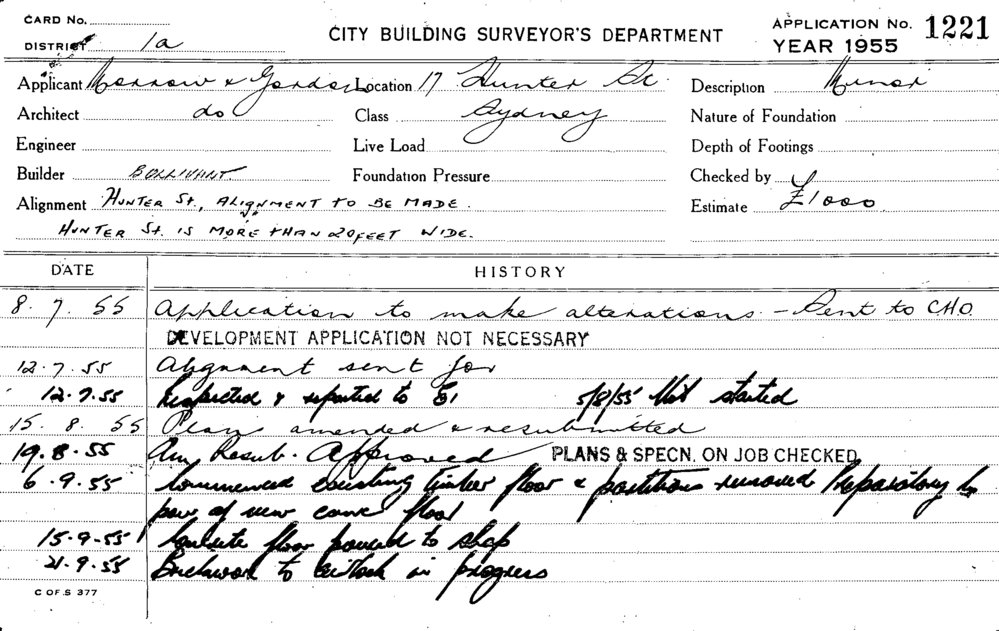 CARD No.
DISTRICT 1a
CITY BUILDING SURVEYOR'S DEPARTMENT
APPLICATION No. 1221
YEAR 1955
Applicant Morrow & Gordon Location 17 Hunter St. Description Minor
Architect do Class Sydney Nature of Foundation
Engineer Live Load Depth of Footings
Builder BOLLIVANT Foundation Pressure Checked by
Alignment HUNTER ST., ALIGNMENT TO BE MADE. Estimate £1000
HUNTER ST. IS MORE THAN 20 FEET WIDE.
DATE HISTORY
8.7.55 Application to make alterations - Sent to CHO.
DEVELOPMENT APPLICATION NOT NECESSARY
12.7.55 Alignment sent for
12.7.55 Inspected & reported to 5/8/55 Not started
15.8.55 Plan amended & resubmitted
19.8.55 Resub. Approved PLANS & SPECN. ON JOB CHECKED
6.9.55 Commenced existing timber floor & partitions removed Preparatory to
pour of new conc floor
15-9-55 Concrete floor poured to shop
21.9.55 Brickwork to in progress
C OF S 377